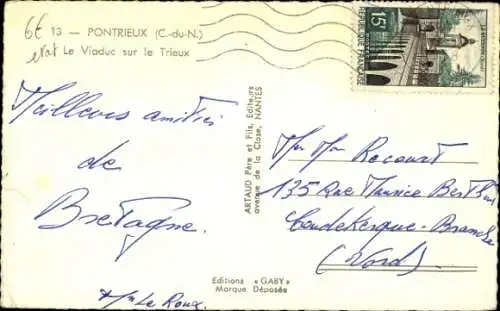 6€
13 — PONTRIEUX (C.-du-N.)
Le Viaduc sur le Trieux
Meilleures amitiés
de
Bretagne.
Mme Le Roux.
ARTAUD Père et Fils, Editeurs
avenue de la Close, NANTES
Editions « GABY »
Marque Déposée
15F
REPUBLIQUE FRANÇAISE
Mr Mme Recourt
135 Rue Maurice Berthe
Coudekerque-Branche
(Nord)